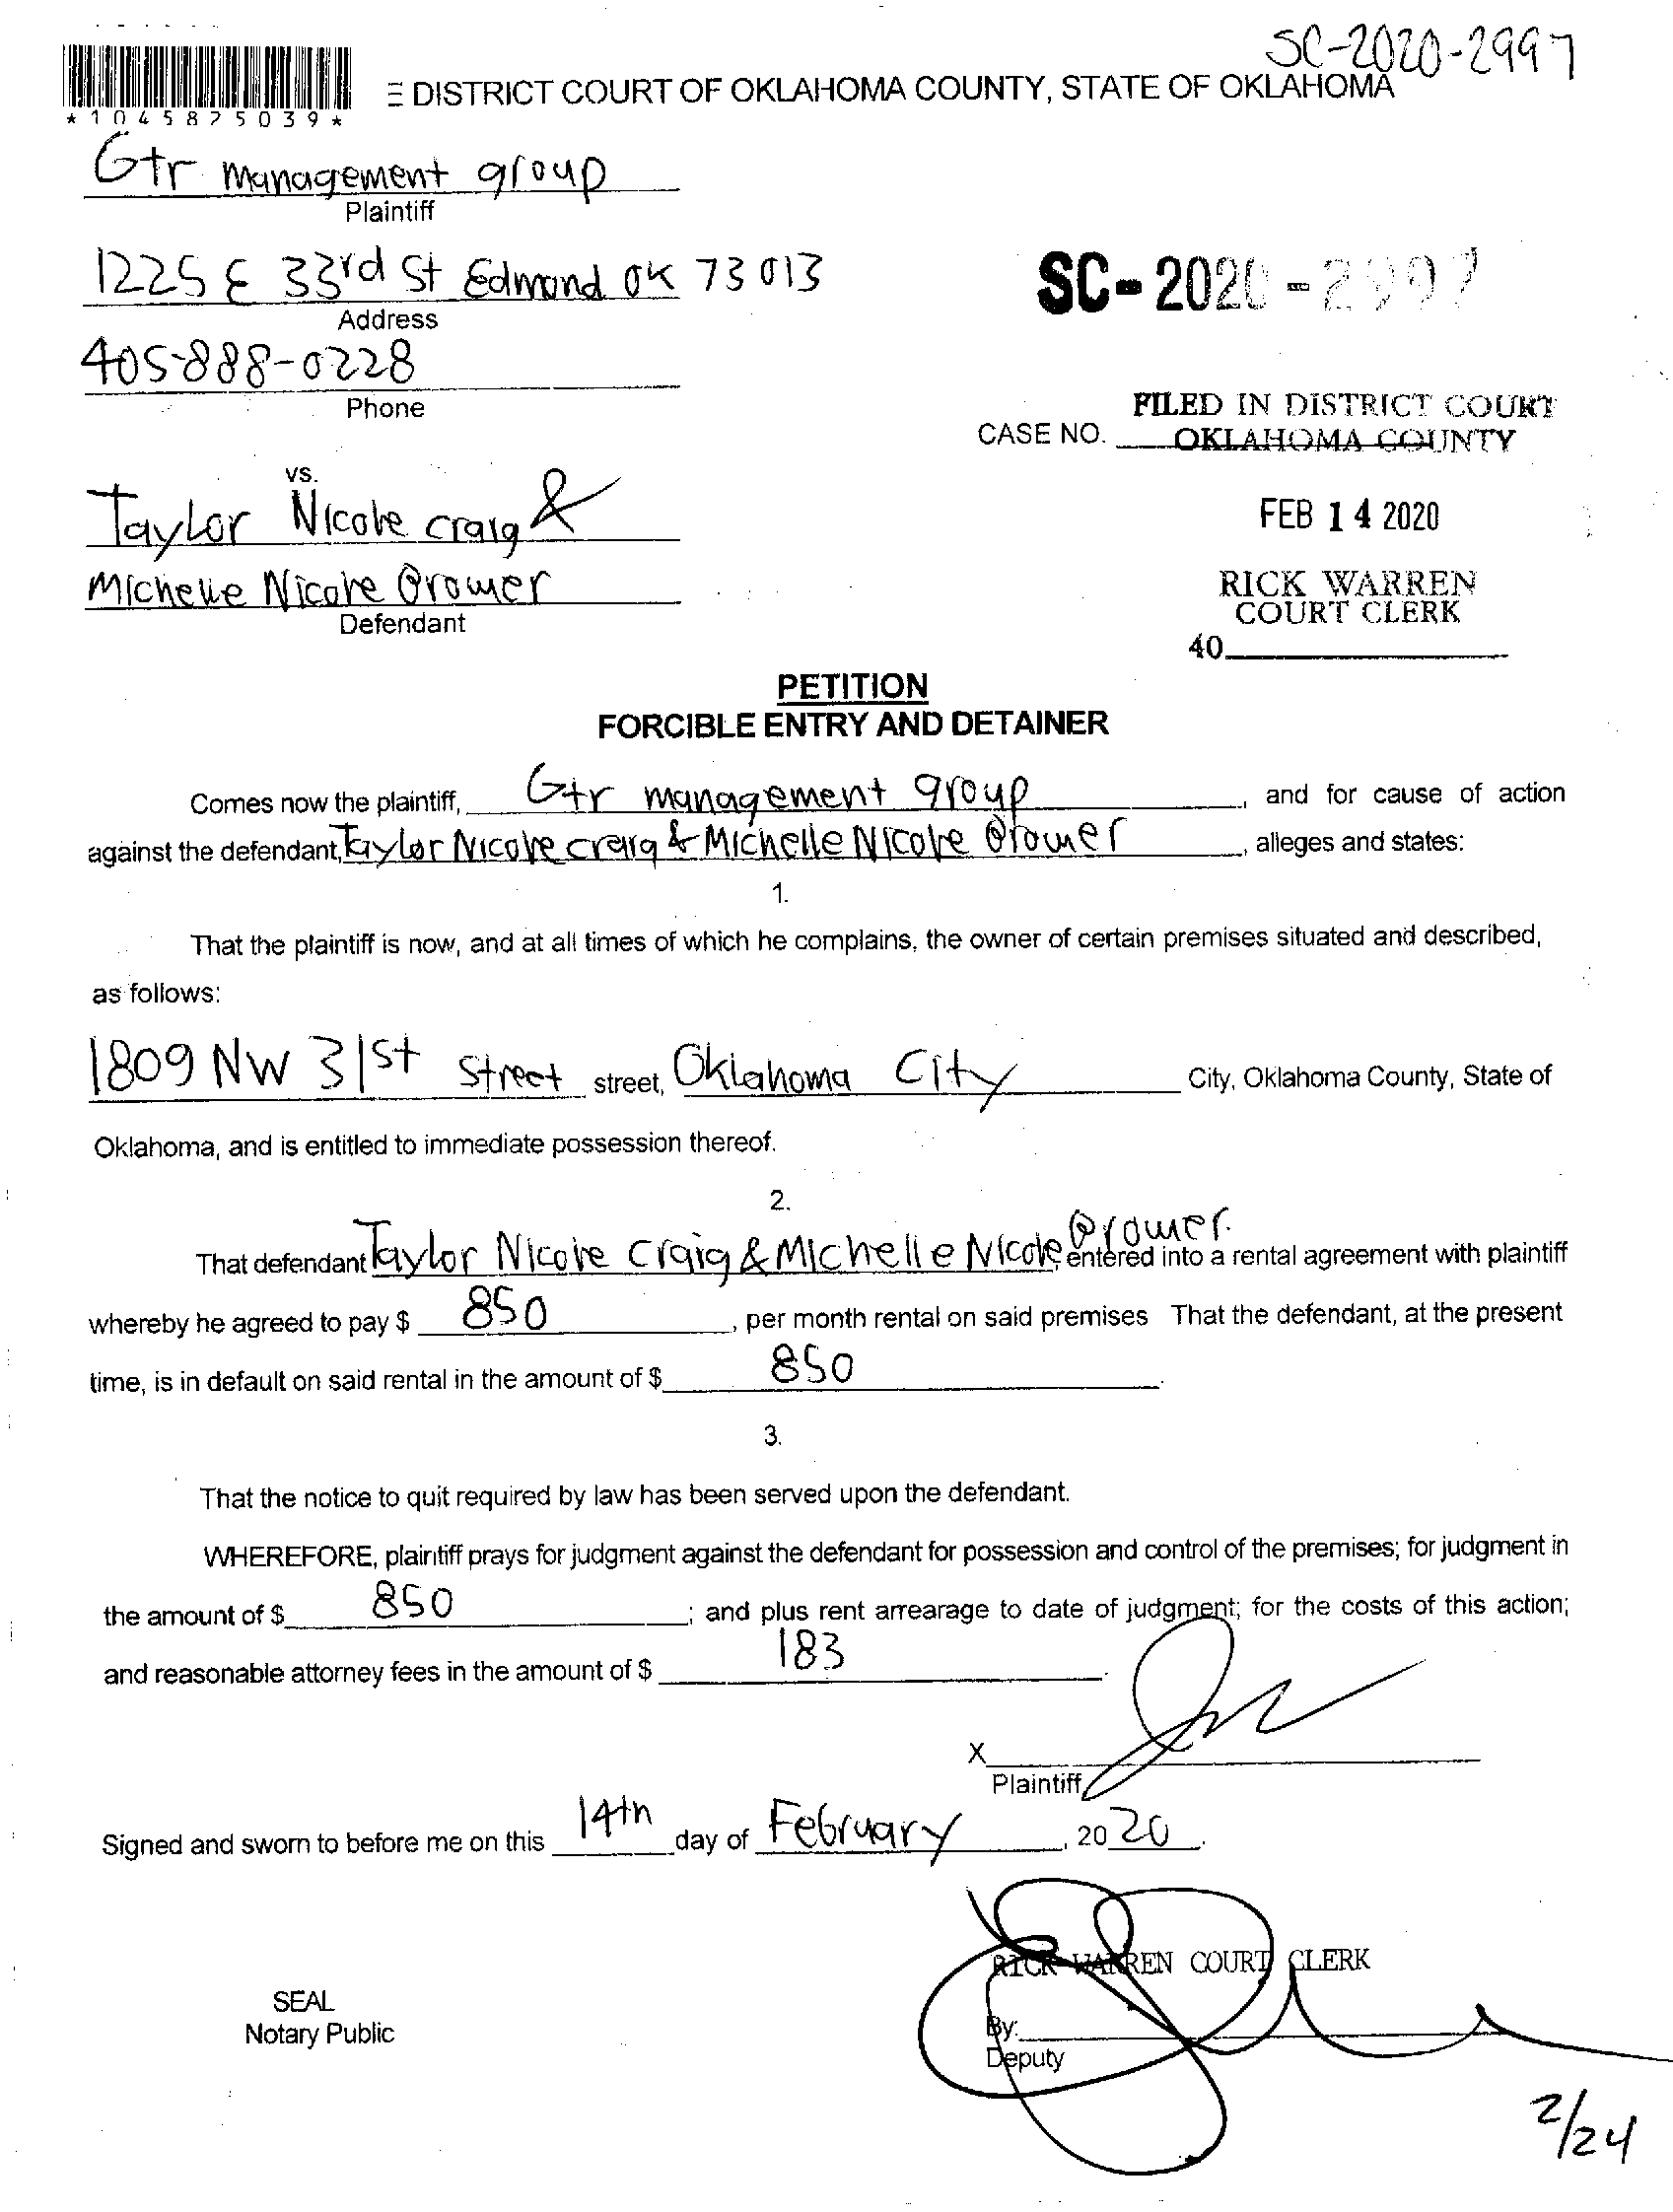 SC-2020-2997
DISTRICT COURT OF OKLAHOMA COUNTY, STATE OF OKLAHOMA
*1045825039*
Gtr management group
Plaintiff
1225 E 33rd St Edmond OK 73013
Address
SC-2020-2997
405-888-0228
Phone
FILED IN DISTRICT COURT
CASE NO. OKLAHOMA COUNTY
vs.
Taylor Nicole craig &
FEB 14 2020
Michelle Nicole
Defendant
RICK WARREN
COURT CLERK
40
PETITION
FORCIBLE ENTRY AND DETAINER
Comes now the plaintiff, Gtr management group, and for cause of action
against the defendant, Taylor Nicole craig & Michelle Nicole, alleges and states:
1.
That the plaintiff is now, and at all times of which he complains, the owner of certain premises situated and described,
as follows:
1809 NW 31st Street street, Oklahoma City City, Oklahoma County, State of
Oklahoma, and is entitled to immediate possession thereof.
2.
That defendant Taylor Nicole Craig & Michelle Nicole, entered into a rental agreement with plaintiff
whereby he agreed to pay $ 850, per month rental on said premises That the defendant, at the present
time, is in default on said rental in the amount of $ 850.
3.
That the notice to quit required by law has been served upon the defendant.
WHEREFORE, plaintiff prays for judgment against the defendant for possession and control of the premises; for judgment in
the amount of $ 850; and plus rent arrearage to date of judgment; for the costs of this action;
and reasonable attorney fees in the amount of $ 183.
X
Plaintiff
Signed and sworn to before me on this 14th day of February, 2020.
RICK WARREN COURT CLERK
SEAL
Notary Public
By:
Deputy
2/24